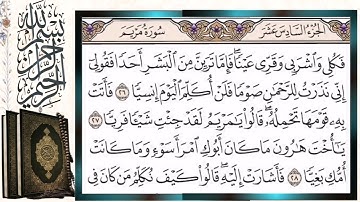 الجزء السادس عشر
سورة مريم
بسم الله الرحمن الرحيم
فَكُلِى وَٱشْرَبِى وَقَرِّى عَيْنًا ۖ فَإِمَّا تَرَيِنَّ مِنَ ٱلْبَشَرِ أَحَدًا فَقُولِىٓ
إِنِّى نَذَرْتُ لِلرَّحْمَٰنِ صَوْمًا فَلَنْ أُكَلِّمَ ٱلْيَوْمَ إِنسِيًّا ٢٦ فَأَتَتْ
بِهِۦ قَوْمَهَا تَحْمِلُهُۥ ۖ قَالُوا۟ يَٰمَرْيَمُ لَقَدْ جِئْتِ شَيْـًٔا فَرِيًّا ٢٧
يَٰٓأُخْتَ هَٰرُونَ مَا كَانَ أَبُوكِ ٱمْرَأَ سَوْءٍ وَمَا كَانَتْ
أُمُّكِ بَغِيًّا ٢٨ فَأَشَارَتْ إِلَيْهِ ۖ قَالُوا۟ كَيْفَ نُكَلِّمُ مَن كَانَ فِى